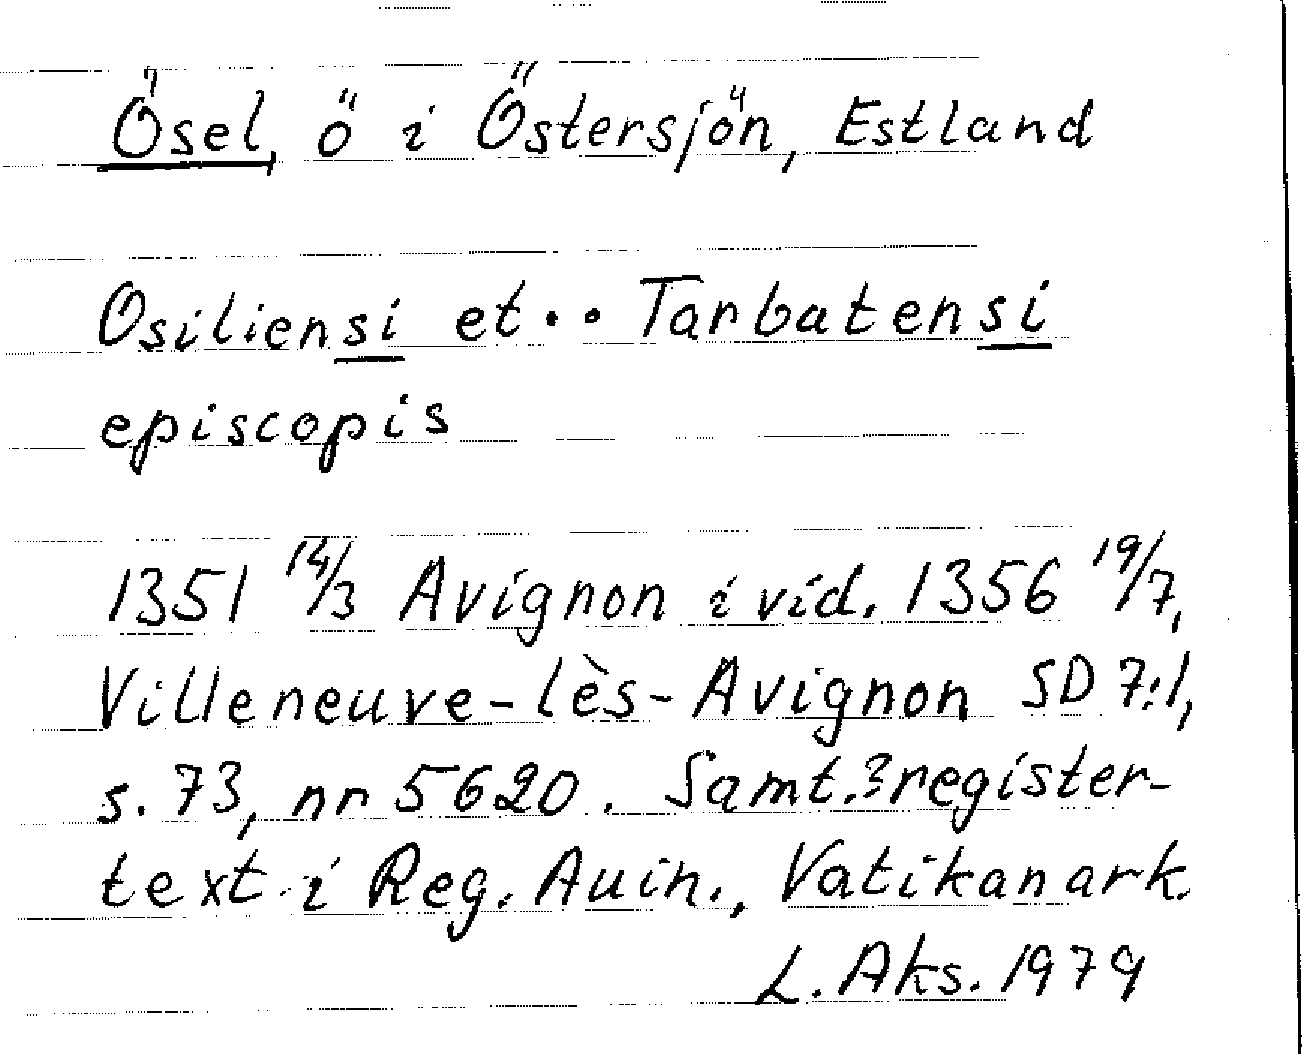 Ösel, ö i Östersjön, Estland
Osiliensi et . . Tarbatensi
episcopis
1351 14/3 Avignon i vid. 1356 19/7,
Villeneuve-lès-Avignon SD 7:1,
s. 73, nr 5620. Samt.? register-
text i Reg. Auin., Vatikanark.
L. Aks. 1979